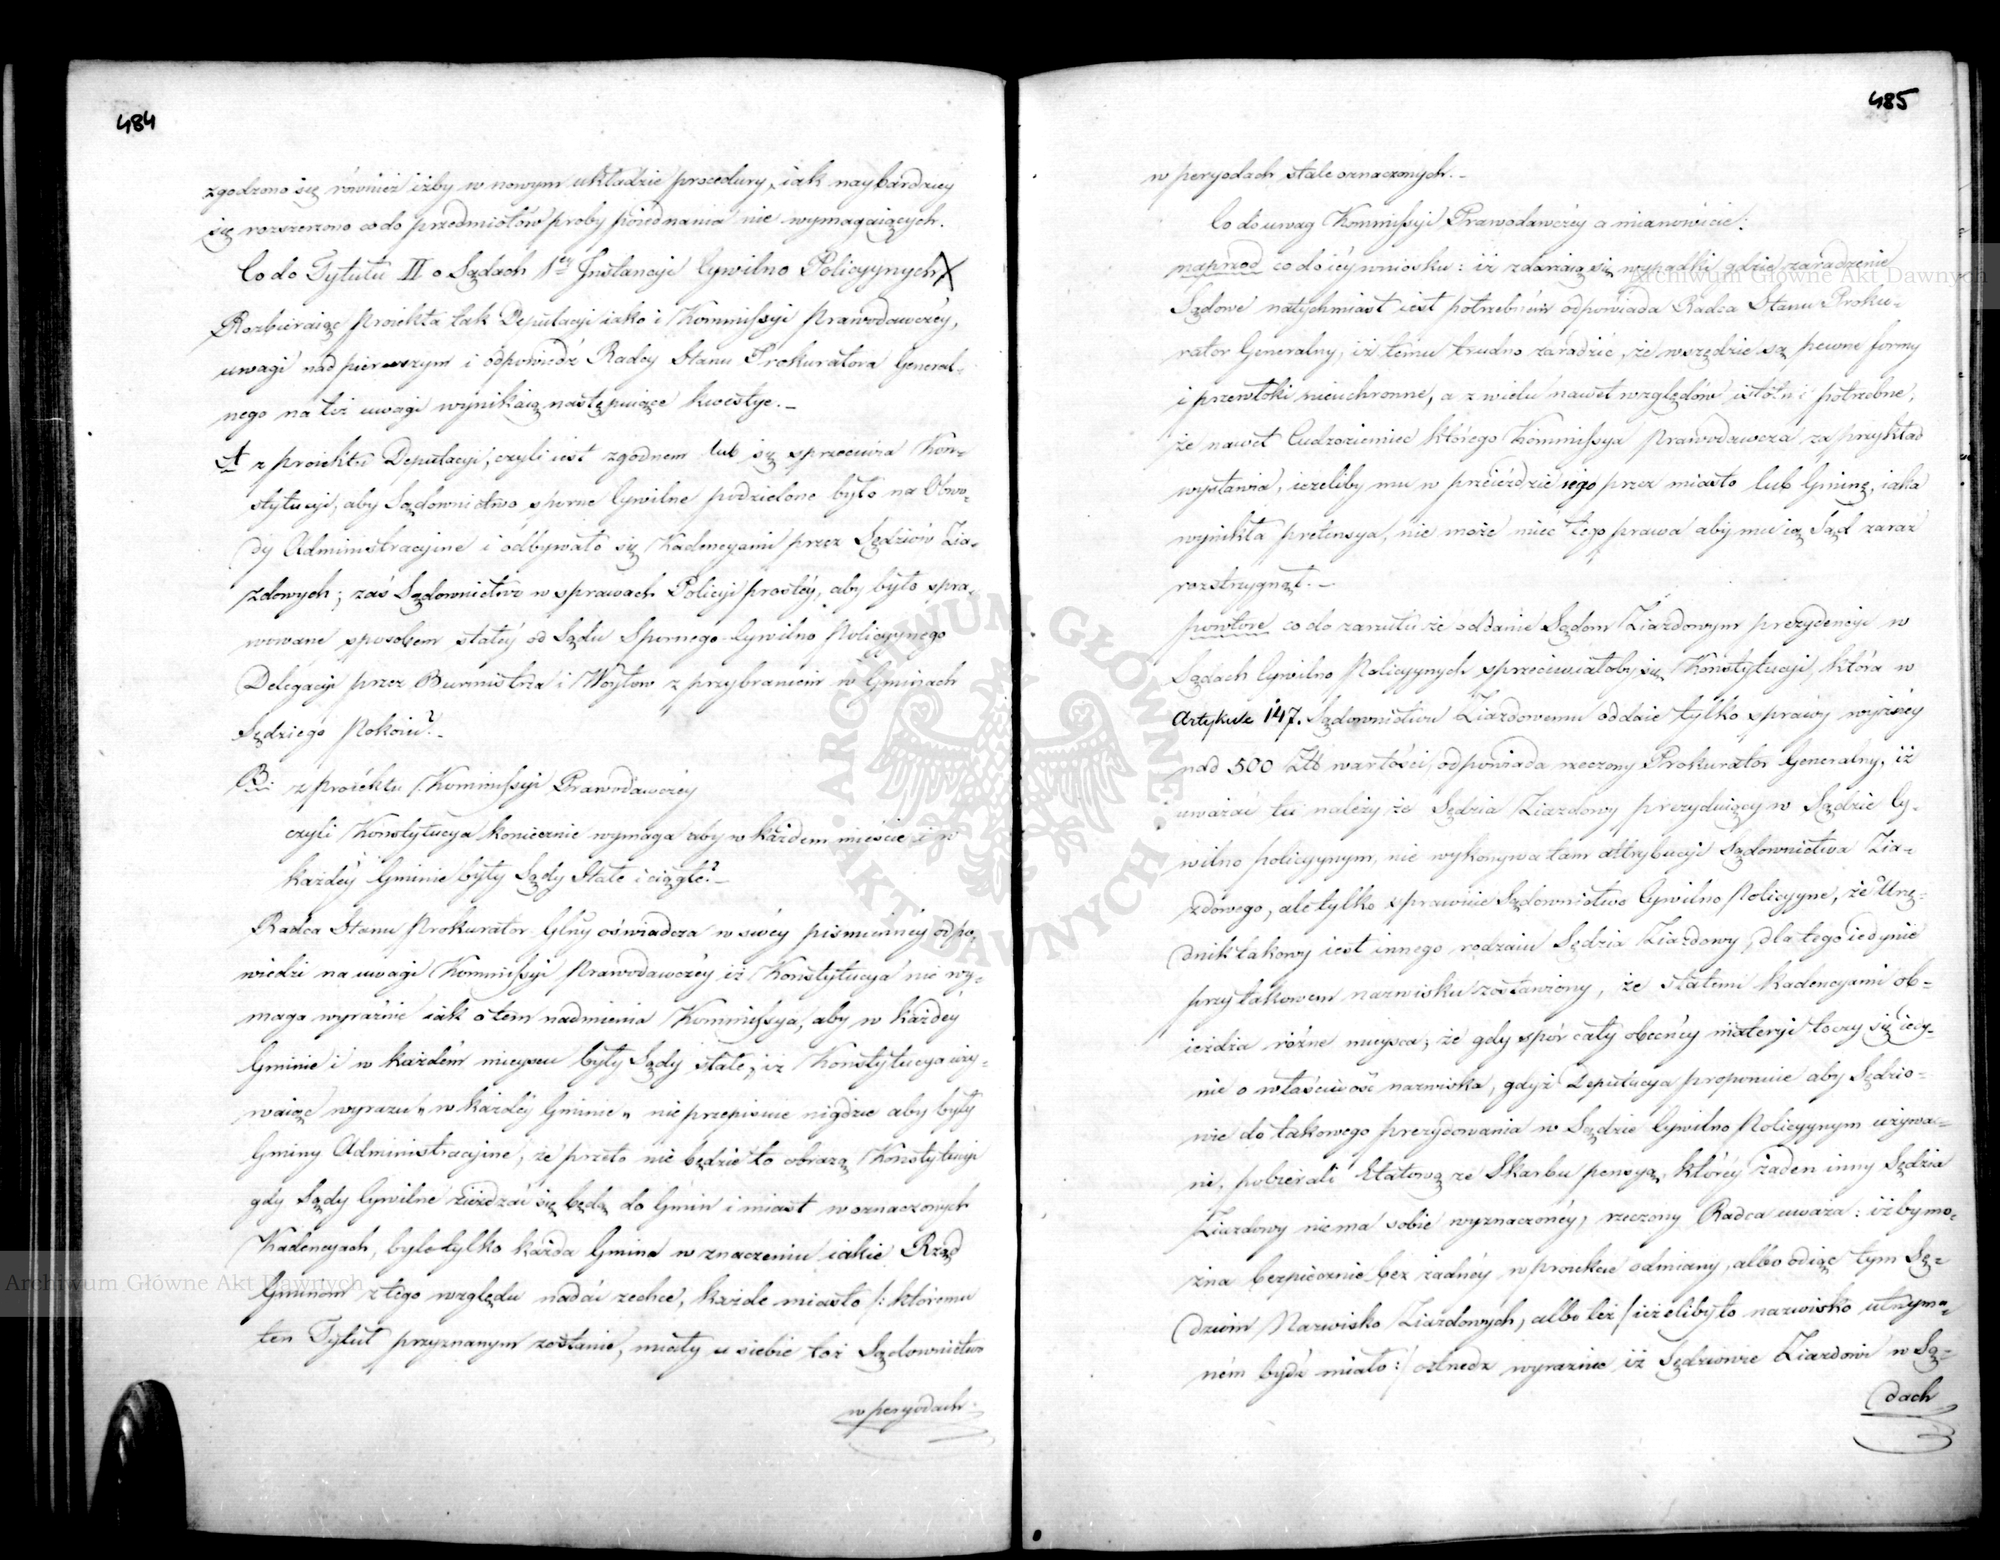 484
zgodzono się również iżby w nowym układzie procedury, iak naybardziey
się rozszerzono co do przedmiotów proby poiednania nie wymagaiących.
Co do Tytułu II o Sądach 1ey Instancyi Cywilno Policyynych X
Rozbieraiąc Proiekta tak Deputacyi iako i Kommissyi Prawodawczéy,
uwagi nad pierwszym i odpowiedź Radcy Stanu Prokuratora General-
nego na też uwagi wynikaią następuiące kwestye. –
A z proiektu Deputacyi, czyli iest zgodnem lub się sprzeciwia Kon-
stytucyi, aby Sądownictwo sporne Cywilne podzielone było na Obwo-
dy Administracyine i odbywało się Kadencyami przez Sędziów Zia-
zdowych; zaś Sądownictwo w sprawach Policyi prostéy, aby było spra-
wowane sposobem stałéy od Sądu Spornego Cywilno Policyynego
Delegacyi przez Burmistrza i Woytow z przybraniem w Gminach
Sędziego Pokoiu? –
B. z proiektu Kommissyi Prawodawczéy
czyli Konstytucya koniecznie wymaga aby w każdem mieście i w
każdéy Gminie były Sądy Stałe i ciągłe? –
Radca Stanu Prokurator Glny oświadcza w swéy piśmiennéy odpo-
wiedzi na uwagi Kommissyi Prawodawczéy iż Konstytucya nie wy-
maga wyraźnie iak o tem nadmienia Kommissya, aby w każdéy
Gminie i w każdém mieyscu były Sądy stałe, iż Konstytucya uży-
waiąc wyrazu „ w każdéy Gminie „ nie przepisuie nigdzie aby były
Gminy Administracyine, że przeto nie będzie to obrazą Konstytucyi
gdy Sądy Cywilne zieżdżać się będą do Gmin i miast w oznaczonych
Kadencyach, byle tylko każda Gmina w znaczeniu iakie Rząd
Gminom z tego względu nadać zechce, każde miasto /: któremu
ten Tytuł przyznanym zostanie, miały u siebie toż Sądownictwo
w peryodach
485
w peryodach stale oznaczonych. –
Co do uwag Kommissyi Prawodawczéy a mianowicie:
naprzod co do iéy wniosku: iż zdarzaią się wypadki gdzie zaradzenie
Sądowe natychmiast iest potrzebném odpowiada Radca Stanu Proku-
rator Generalny, iż temu trudno zaradzić, że wszędzie są pewne formy
i przewłoki nieuchronne, a z wielu nawet względów istotnie potrzebne,
że nawet Cudzoziemiec którego Kommissya Prawodawcza za przykład
wystawia, ieżeliby mu w przeieździe iego przez miasto lub Gminę, iaka
wynikła pretensya, nie może mieć tego prawa aby mu ią Sąd zaraz
rozstrzygnął. –
powtore co do zarzutu że oddanie Sądom Ziazdowym prezydencyi w
Sądach Cywilno Policyynych sprzeciwiałoby się Konstytucyi, która w
Artykule 147. Sądownictwu Ziazdowemu oddaie tylko sprawy wyżéy
nad 500 Złł wartości, odpowiada rzeczony Prokurator Generalny, iż
uważać tu należy że Sędzia Ziazdowy prezyduiący w Sądzie Cy-
wilno policyynym, nie wykonywa tam attrybucyi Sądownictwa Zia-
zdowego, ale tylko sprawuie Sądownictwo Cywilno Policyyne, że Urzę-
dnik takowy iest innego rodzaiu Sędzia Ziazdowy, dla tego iedynie
przy takowem nazwisku zostawiony, że stałemi Kadencyami ob-
ieżdża różne mieysca; że gdy spór cały obecnéy materyi toczy się iedy-
nie o właściwość nazwiska, gdyż Deputacya proponuie aby Sędzio-
wie do takowego prezydowania w Sądzie Cywilno Policyynym używa-
ni, pobierali Etatową ze Skarbu pensyą, któréy żaden inny Sędzia
Ziazdowy nie ma sobie wyznaczonéy, rzeczony Radca uważa: iż by mo-
żna bezpiecznie bez żadnéy w proiekcie odmiany, albo odiąć tym Sę-
dziom Nazwisko Ziazdowych, albo też /ieżeliby to nazwisko utrzyma-
ném bydź miało:/ orzedz wyraźnie iż Sędziowie Ziazdowi w Są-
dach